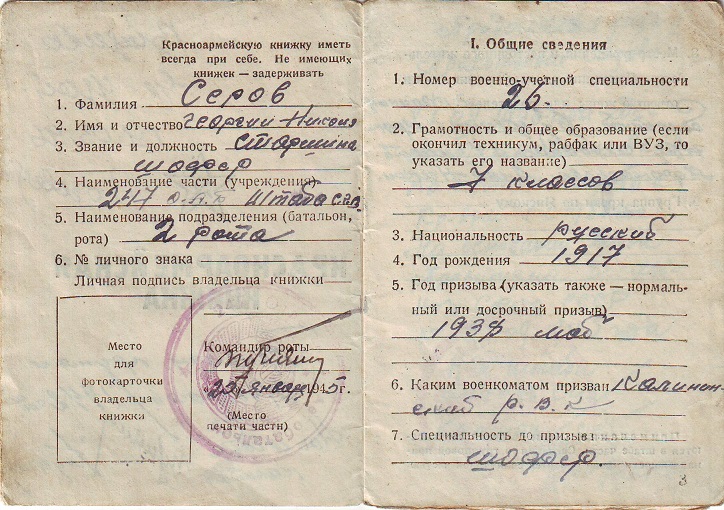 Красноармейскую книжку иметь
всегда при себе. Не имеющих
книжек — задерживать
1. Фамилия Серов
2. Имя и отчество Георгий
3. Звание и должность Старшина
шофер
4. Наименование части (учреждения)
247 Штаба
5. Наименование подразделения (батальон,
рота) 2 рота
6. № личного знака
Личная подпись владельца книжки
Место
для
фотокарточки
владельца
книжки
Командир роты
январ 1945 г.
(Место
печати части)
I. Общие сведения
1. Номер военно-учетной специальности
26.
2. Грамотность и общее образование (если
окончил техникум, рабфак или ВУЗ, то
указать его название)
7 классов
3. Национальность русский
4. Год рождения 1917
5. Год призыва (указать также — нормаль-
ный или досрочный призыв)
моб
6. Каким военкоматом призван Калинин-
ский Р.В.К
7. Специальность до призыва
шофер.
3